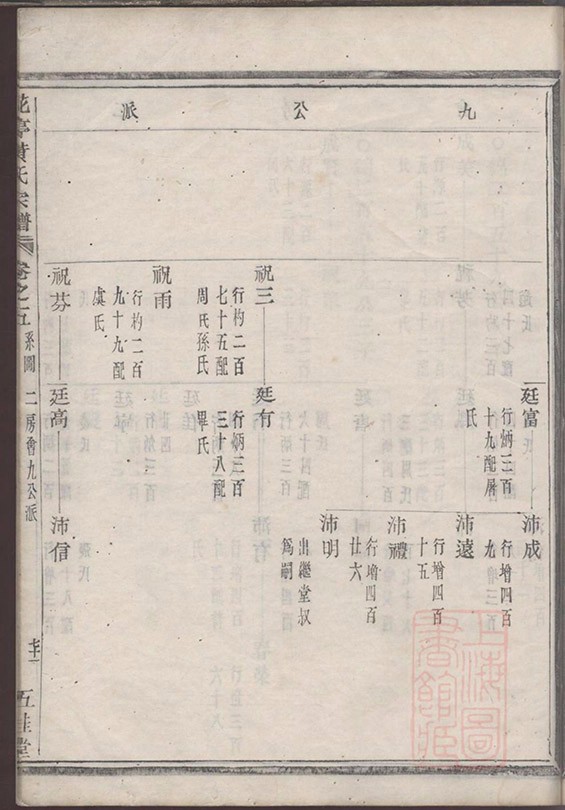 九公派
廷富
行炳三百
十九配屠
氏
沛成
行增四百
九
沛遠
行增四百
十五
沛禮
行增四百
廿六
沛明
出繼堂叔
爲嗣
祝三
行杓二百
七十五配
周氏孫氏
廷有
行炳三百
三十八配
畢氏
祝雨
行杓二百
九十九配
虞氏
祝芬
廷高
沛信
黃氏宗譜
卷之五
系圖 二房會九公派
五桂堂
上海圖書館藏